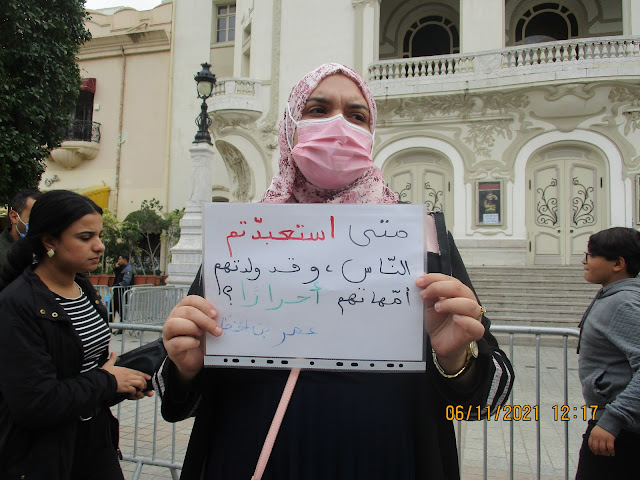 متى استعبدّتم
النّاس، وقد ولدتهم
أمّهاتهم أحرارًا؟!
عمر بن الخطاب
06/11/2021 12:17